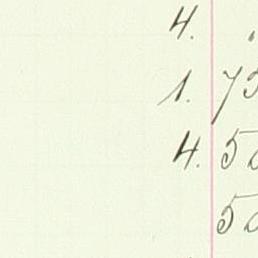 4.
1. 7
4. 5
5